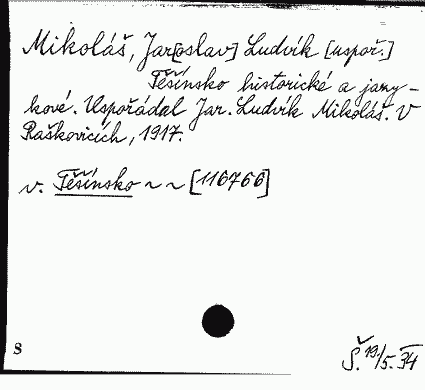 Mikoláš, Jar[oslav] Ludvík [uspoř.]
Těšínsko historické a jazy-
kové. Uspořádal Jar. Ludvík Mikoláš. V
Raškovicích, 1917.
v. Těšínsko ~ ~ [116766]
S
Š. 19/5. 34